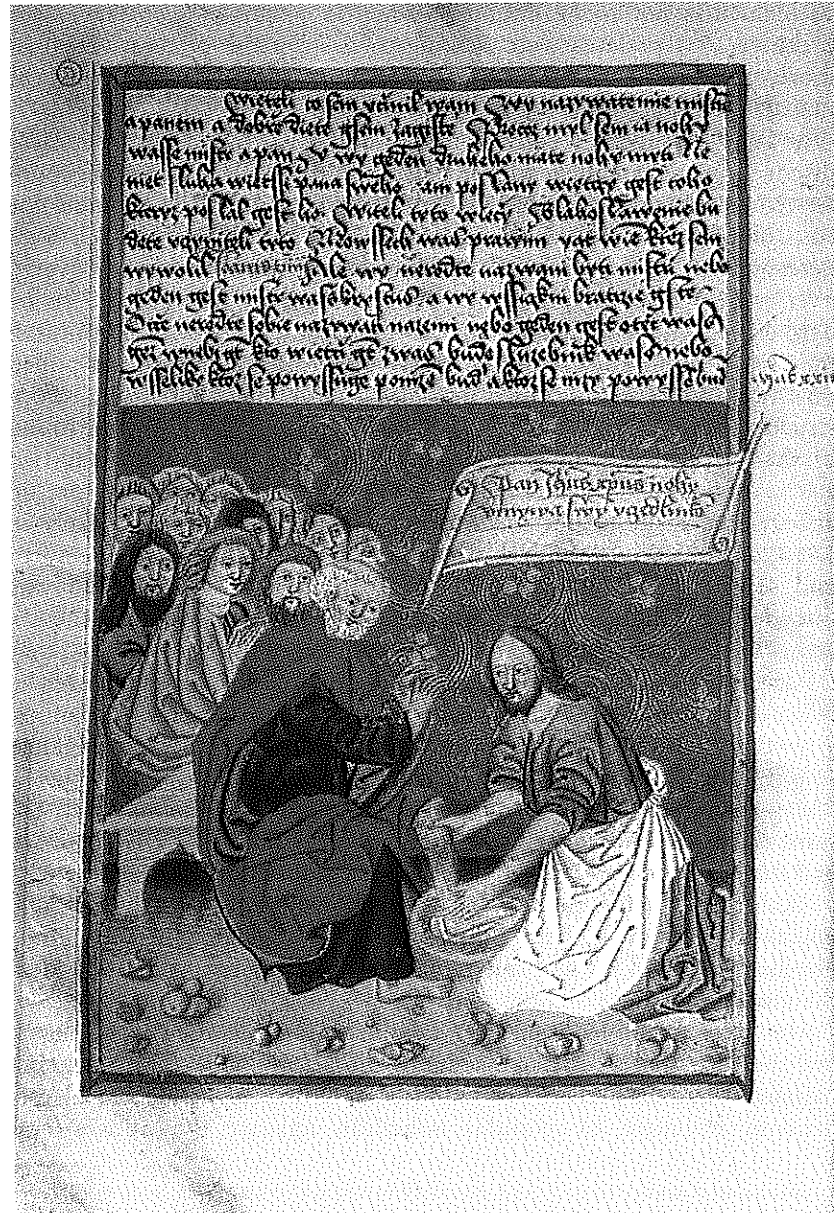 Wieteli co sem vczinil wam Wy nazywate mie mistrze
a panem a dobrze diete gsem zagiste Procez myl sem ia nohy
wasse mistr a pan y wy geden druheho mate nohy myti Ne
nie sluha wietssi pana sweho ani poslany wietczy gest toho
ktoryz poslal gest ho Wieteli tyto wieczy Blahoslaweni bu
dete vczyniteli tyto Ne o wssech was prawim yat wiem ktere sem
wywolil Ale wy nerodte nazwani byti mistrzi nebo
geden gest mistr was a wy wssiczkni bratrzie gste
Otcze nerodte sobie nazywati na zemi nebo geden gest otecz was
genz w nebi gest kto wietczi gest z was bude sluzebnik was nebo
wsseliky ktoz se powyssuge ponizen bude a ktoz se nizy powyssen bude
Mat xxiii
Pan Jhus xpus nohy
vmywa swym vczedlnikom